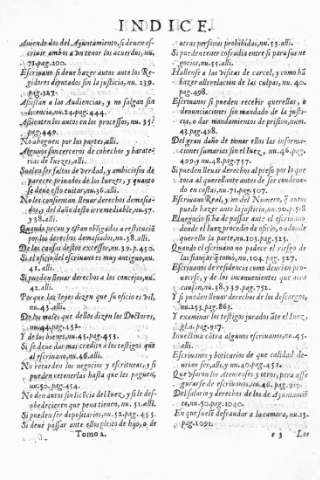 INDICE.
Aviendo dos del Ayuntamiento, si deven es-
crivir ambos o tener los acuerdos, nu.
71. pag. 100.
Escrivano si deve hazer autos ante los Re-
gidores diputados sin la justicia, nu. 239.
pag. 127.
Assistan a las Audiencias, y no salgan sin
licencia, nu. 24. pag. 444.
Assienten los autos en los processos, nu. 35.
pag. 449.
No aboguen por las partes alli.
Algunos son terceros de cohechos y barate-
rias de Iuezes, alli.
Suelen ser faltos de verdad, y ambiciosos de
parecer privados de los Iuezes, y quanto
se deve esto evitar, nu. 36. alli.
No les consientan llevar derechos demasia-
dos, del daño desto irremediable, nu. 37.
y 38. alli.
Quando pecan y estan obligados a restituciõ
por los derechos demasiados, nu. 38. alli.
De las causas destos excessos, nu. 39. p. 450.
Si el oficio del escrivano es muy antiguo, nu.
41. alli.
Si pueden llevar derechos a los concejos, nu.
42. alli.
Porque las leyes dizen que su oficio es vil,
nu. 43. alli.
De los males que dellos dizen los Doctores,
nu. 44. pag. 452.
Y de los bienes, nu. 45. pag. 453.
Si se deve dar mas credito a los testigos que
al escrivano, nu. 48. alli.
No retarden los negocios y escrituras, y si
pueden retenerlas hasta que les paguen,
nu. 50. pag. 454.
No den autos sin licencia del Iuez, y si le des-
obedecieren que pena tienen, nu. 51. alli.
Si pueden ser depositarios, nu. 52. pag. 455.
Si deve passar ante el su pleito de hijo, o de
Tomo 2.
otras personas prohibidas, nu. 53. alli.
Si puede tener cofradia entre si para sus ne-
gocios, nu. 55. alli.
Hallense a las visitas de carcel, y como há
de hazer alli relacion de las culpas, nu. 40.
pag. 498.
Escrivanos si pueden recebir querellas, o
denunciaciones sin mandado de la justi-
cia, o dar mandamientos de prision, num.
43. pag. 498.
Del gran daño de tomar ellos las informa-
ciones sumarias sin el Iuez, nu. 46. pag.
499. y nu. 48. pag. 757.
Si pueden llevar derechos al preso por lo que
toca al querellante antes de ser condena-
do en costas, nu. 71. pag. 507.
Escrivano Real, y no del Numero,
puede hazer ante la justicia, nu. 90. p. 516.
El negocio si ha de passar ante el escrivano
donde el Iuez procede de oficio, o a donde
querella la parte, nu. 103. pag. 521.
Quando el escrivano no padece el riesgo de
las fianças que tomò, nu. 104. pag. 527.
Escrivano de residencia como deve ser pro-
veydo, y de los inconvenientes que acerca
causan, nu. 38. y 39. pag. 752.
Y si pueden llevar derechos de los descargos,
nu. 253. pag. 863.
Y examinar los testigos jurados ãte el Iuez,
pag. 917.
Inectiva contra algunos escrivanos, nu. 45.
alli.
Escrivano y boticario de que calidad de-
vian ser, alli, y nu. 40. pag. 452.
Que usavan los Atenienses y otros, para asse-
gurarse de escrivanos, nu. 46. pag. 913.
Del salario y derechos de los de Ayuntamiẽ-
to, nu. 50. pag. 1040.
En que suele defraudar a la camara, nu. 13.
pag. 1092.
e 3 Los